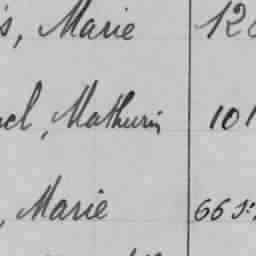 s, Marie 12
el, Mathurin 101
, Marie 66